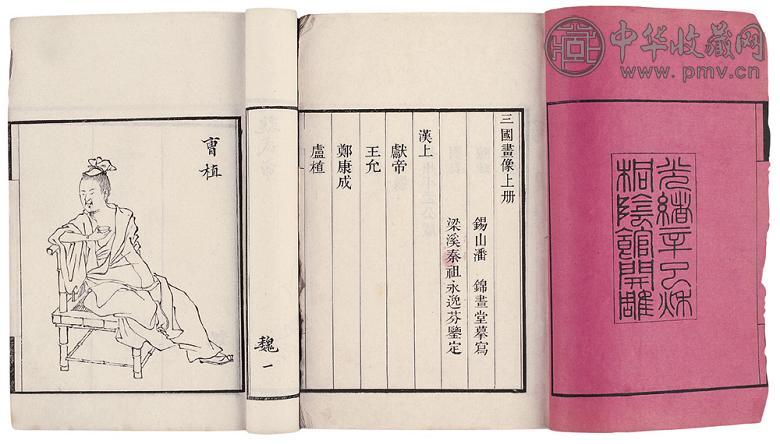 中华收藏网
www.pmv.cn
光緒辛巳秋
桐陰館開雕
三國畫像上册
錫山潘 錦晝堂摹寫
梁溪秦祖永逸芬鑒定
漢上
獻帝
王允
鄭康成
盧植
魏 一
曹植